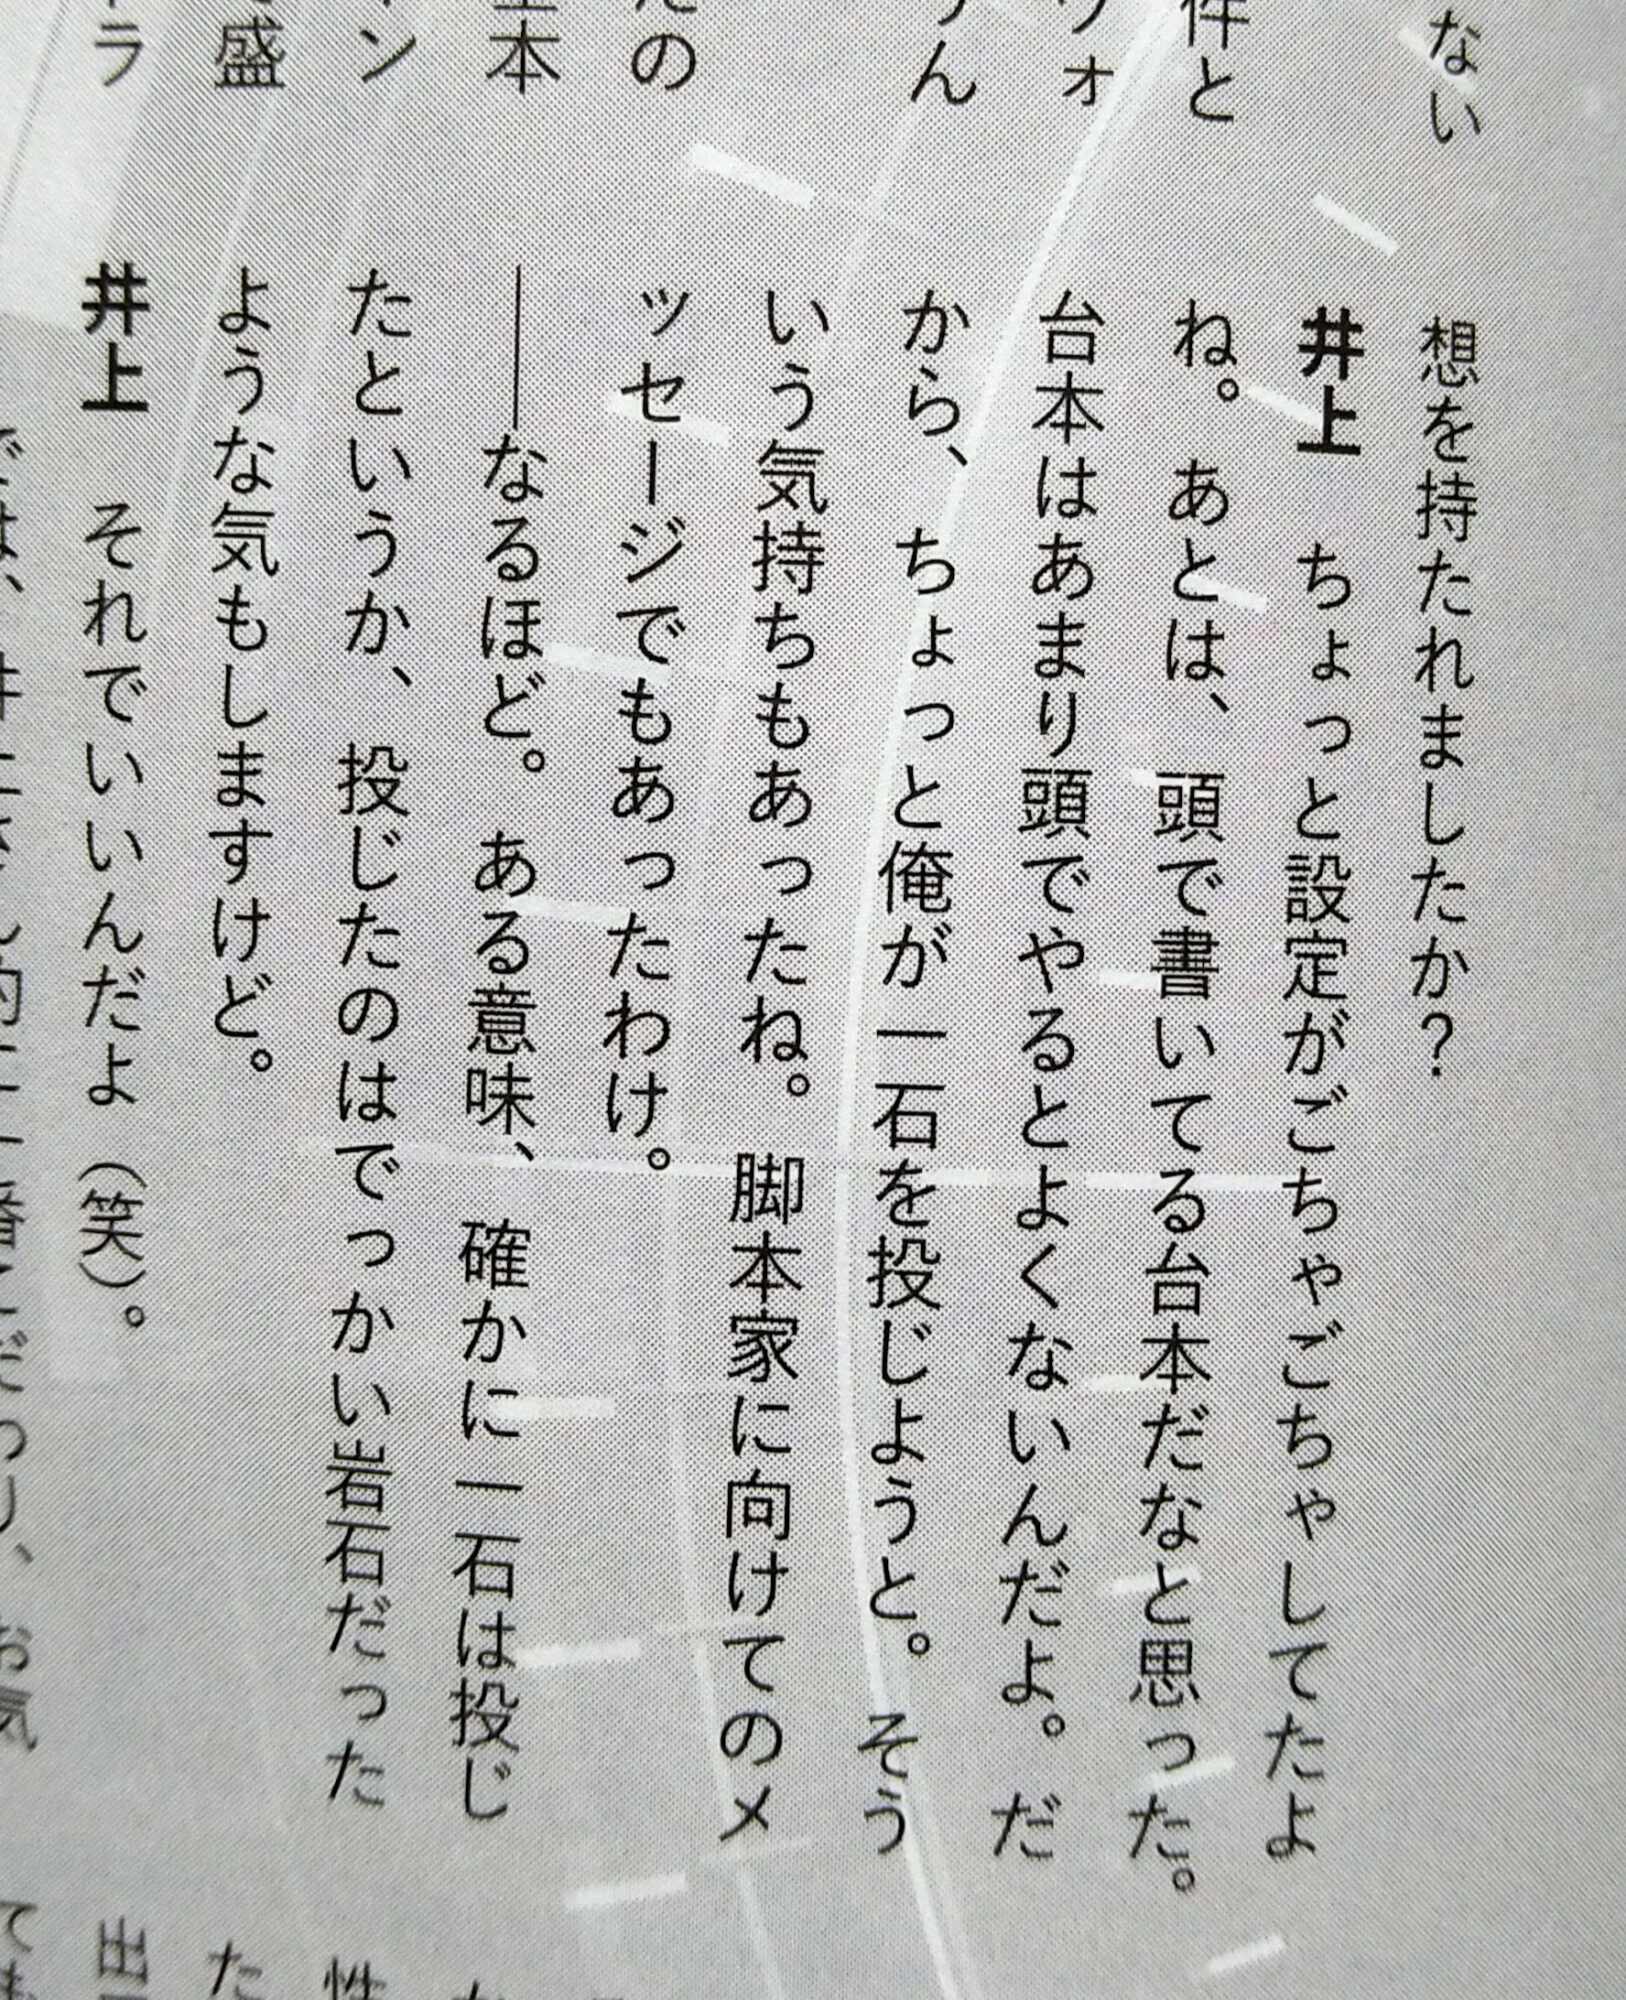 想を持たれましたか？
井上　ちょっと設定がごちゃごちゃしてたよ
ね。あとは、頭で書いてる台本だなと思った。
台本はあまり頭でやるとよくないんだよ。だ
から、ちょっと俺が一石を投じようと。そう
いう気持ちもあったね。脚本家に向けてのメ
ッセージでもあったわけ。
――なるほど。ある意味、確かに一石は投じ
たというか、投じたのはでっかい岩石だった
ような気もしますけど。
井上　それでいいんだよ（笑）。